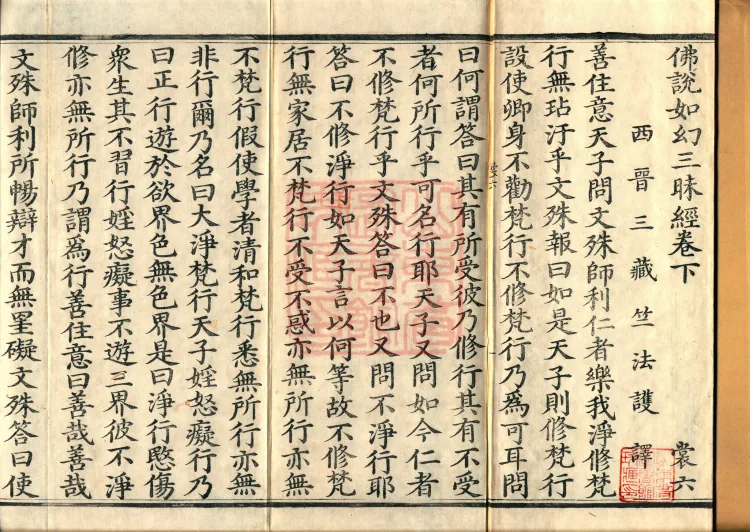 佛說如幻三昧經卷下 裳六
西晉三藏竺法護譯
善住意天子問文殊師利仁者樂我淨修梵
行無玷汙乎文殊報曰如是天子則修梵行
設使卿身不勸梵行不修梵行乃爲可耳問
曰何謂答曰其有所受彼乃修行其有不受
者何所行乎可名行耶天子又問如今仁者
不修梵行乎文殊答曰不也又問不淨行耶
答曰不修淨行如天子言以何等故不修梵
行無家居不梵行不受不惑亦無所行亦無
不梵行假使學者清和梵行悉無所行亦無
非行爾乃名曰大淨梵行天子婬怒癡行乃
曰正行遊於欲界色無色界是曰淨行愍傷
衆生其不習行婬怒癡事不遊三界彼不淨
修亦無所行乃謂爲行善住意曰善哉善哉
文殊師利所暢辯才而無罣礙文殊答曰使